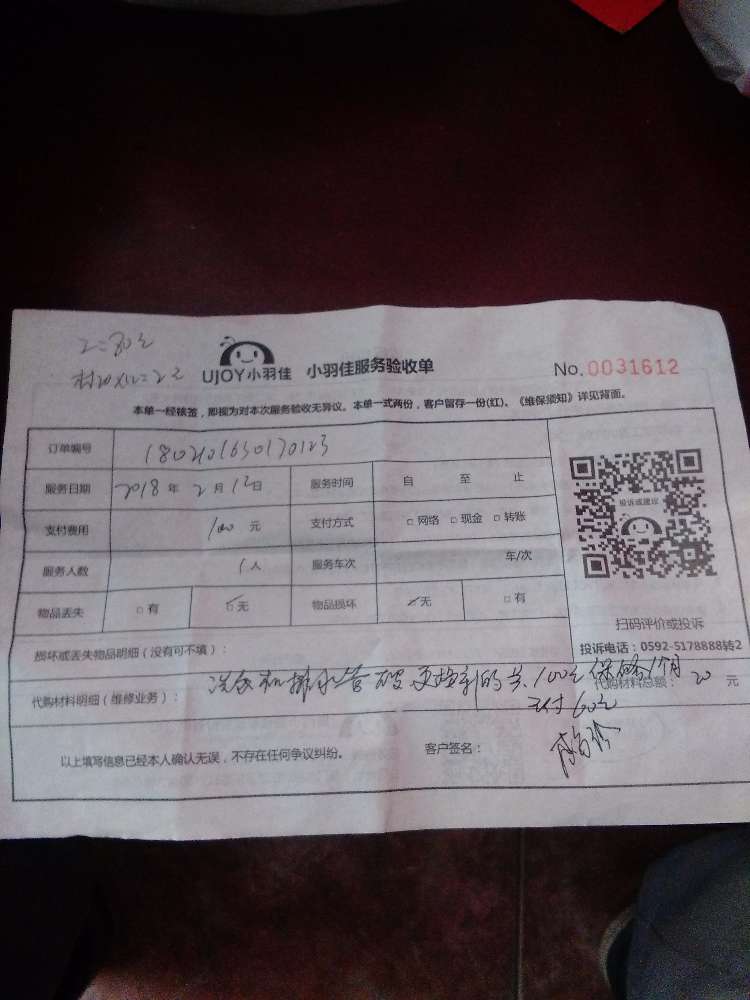 UJOY小羽佳 小羽佳服务验收单 No.0031612
本单一经核签，即视为对本次服务验收无异议。本单一式两份，客户留存一份(红)。《维保须知》详见背面。
订单编号
服务日期 2018年2月12日 服务时间 自 至 止
支付费用 100元 支付方式 □网络 □现金 □转账
服务人数 1人 服务车次 车/次
物品丢失 □有 □无 物品损坏 无 □有
投诉或建议
扫码评价或投诉
投诉电话：0592-5178888转2
损坏或丢失物品明细（没有可不填）：
洗衣机排水管破 更换新的共100元 保修1个月
代购材料明细（维修业务）： 代购材料总额： 20 元
60元
以上填写信息已经本人确认无误，不存在任何争议纠纷。 客户签名：